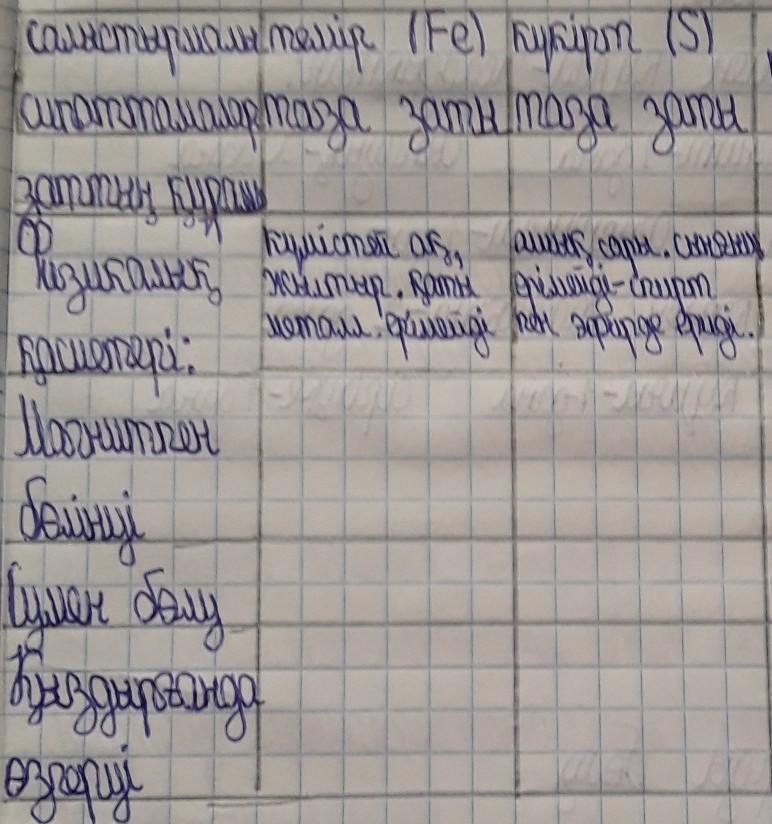 салыстырмалы темір (Fe) күкірт (S)
сипаттамалар таза заты таза заты
заттың құрамы
Физикалық
қасиетері:
күмістей ақ,
жылтыр. қаты
металл. ерімейді
ашық сары. сынғыш
ерімейді-спирт
пен эфирде ериді.
Магнитпен
бөлінуі
Сумен бөлу
Қыздырғанда
өзгеруі